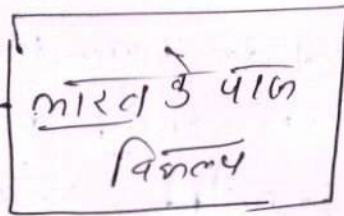 भारत के पास
विकल्प